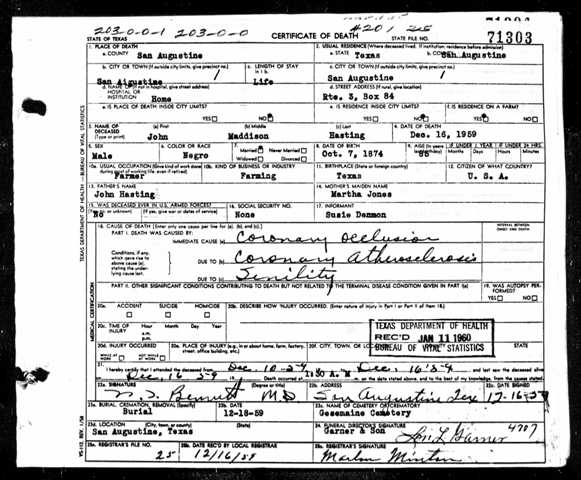 203-0-0-1 203-0-0
71303
STATE OF TEXAS
CERTIFICATE OF DEATH
STATE FILE NO.
71303
1. PLACE OF DEATH
a. COUNTY San Augustine
2. USUAL RESIDENCE (Where deceased lived. If institution: residence before admission)
a. STATE Texas b. COUNTY San Augustine
b. CITY OR TOWN (If outside city limits, give precinct no.) San Aigustine 1
c. LENGTH OF STAY in 1 b. Life
c. CITY OR TOWN (If outside city limits, give precinct no.) San Augustine 1
d. NAME OF (If not in hospital, give street address) HOSPITAL OR INSTITUTION Home
d. STREET ADDRESS (If rural, give location) Rte. 3, Box 84
e. IS PLACE OF DEATH INSIDE CITY LIMITS? YES NO
e. IS RESIDENCE INSIDE CITY LIMITS? YES NO
f. IS RESIDENCE ON A FARM? YES NO
3. NAME OF DECEASED (Type or print)
(a) First John
(b) Middle Maddison
(c) Last Hasting
4. DATE OF DEATH Dec. 16, 1959
5. SEX Male
6. COLOR OR RACE Negro
7. Married Never Married Widowed Divorced
8. DATE OF BIRTH Oct. 7, 1874
9. AGE 85
IF UNDER 1 YEAR Months Days
IF UNDER 24 HRS. Hours Minutes
10a. USUAL OCCUPATION (Give kind of work done during most of working life, even if retired) Farmer
10b. KIND OF BUSINESS OR INDUSTRY Farming
11. BIRTHPLACE (State or foreign country) Texas
12. CITIZEN OF WHAT COUNTRY? U. S. A.
13. FATHER'S NAME John Hasting
14. MOTHER'S MAIDEN NAME Martha Jones
15. WAS DECEASED EVER IN U.S. ARMED FORCES? (Yes, no, or unknown) (If yes, give war or dates of service) No
16. SOCIAL SECURITY NO. None
17. INFORMANT Susie Denmon
18. CAUSE OF DEATH [Enter only one cause per line for (a), (b), and (c).]
INTERVAL BETWEEN ONSET AND DEATH
PART I. DEATH WAS CAUSED BY:
IMMEDIATE CAUSE (a) Coronary Occlusion
Conditions, if any, which gave rise to above cause (a), stating the underlying cause last.
DUE TO (b) Coronary Atherosclerosis
DUE TO (c) Senility
PART II. OTHER SIGNIFICANT CONDITIONS CONTRIBUTING TO DEATH BUT NOT RELATED TO THE TERMINAL DISEASE CONDITION GIVEN IN PART I(a)
19. WAS AUTOPSY PERFORMED? YES NO
20a. ACCIDENT SUICIDE HOMICIDE
20b. DESCRIBE HOW INJURY OCCURRED. (Enter nature of injury in Part I or Part II of item 18.)
20c. TIME OF INJURY Hour a.m. p.m. Month Day Year
TEXAS DEPARTMENT OF HEALTH
REC'D JAN 11 1960
BUREAU OF VITAL STATISTICS
20d. INJURY OCCURRED WHILE AT WORK NOT WHILE AT WORK
20e. PLACE OF INJURY (e.g., in or about home, farm, factory, street, office building, etc.)
20f. CITY, TOWN, OR LOCATION COUNTY STATE
21. I hereby certify that I attended the deceased from Dec. 10-59 to Dec. 16-59 and last saw the deceased alive
on Dec. 16 59 Death occurred at 1:30 A. m on the date stated above, and to the best of my knowledge, from the causes stated.
22a. SIGNATURE Bennett MD (Degree or title)
22b. ADDRESS San Augustine Tex
22c. DATE SIGNED 12-16-59
23a. BURIAL, CREMATION, REMOVAL (Specify) Burial
23b. DATE 12-18-59
23c. NAME OF CEMETERY OR CREMATORY Gesemaine Cemetery
23d. LOCATION (City, town, or county) (State) San Augustine, Texas
24. FUNERAL DIRECTOR'S SIGNATURE Garner & Son Garner 4707
25a. REGISTRAR'S FILE NO. 25
25b. DATE REC'D BY LOCAL REGISTRAR 12/16/59
25c. REGISTRAR'S SIGNATURE Marlon Minton
TEXAS DEPARTMENT OF HEALTH - BUREAU OF VITAL STATISTICS
MEDICAL CERTIFICATION
VS-112, REV. 1/58